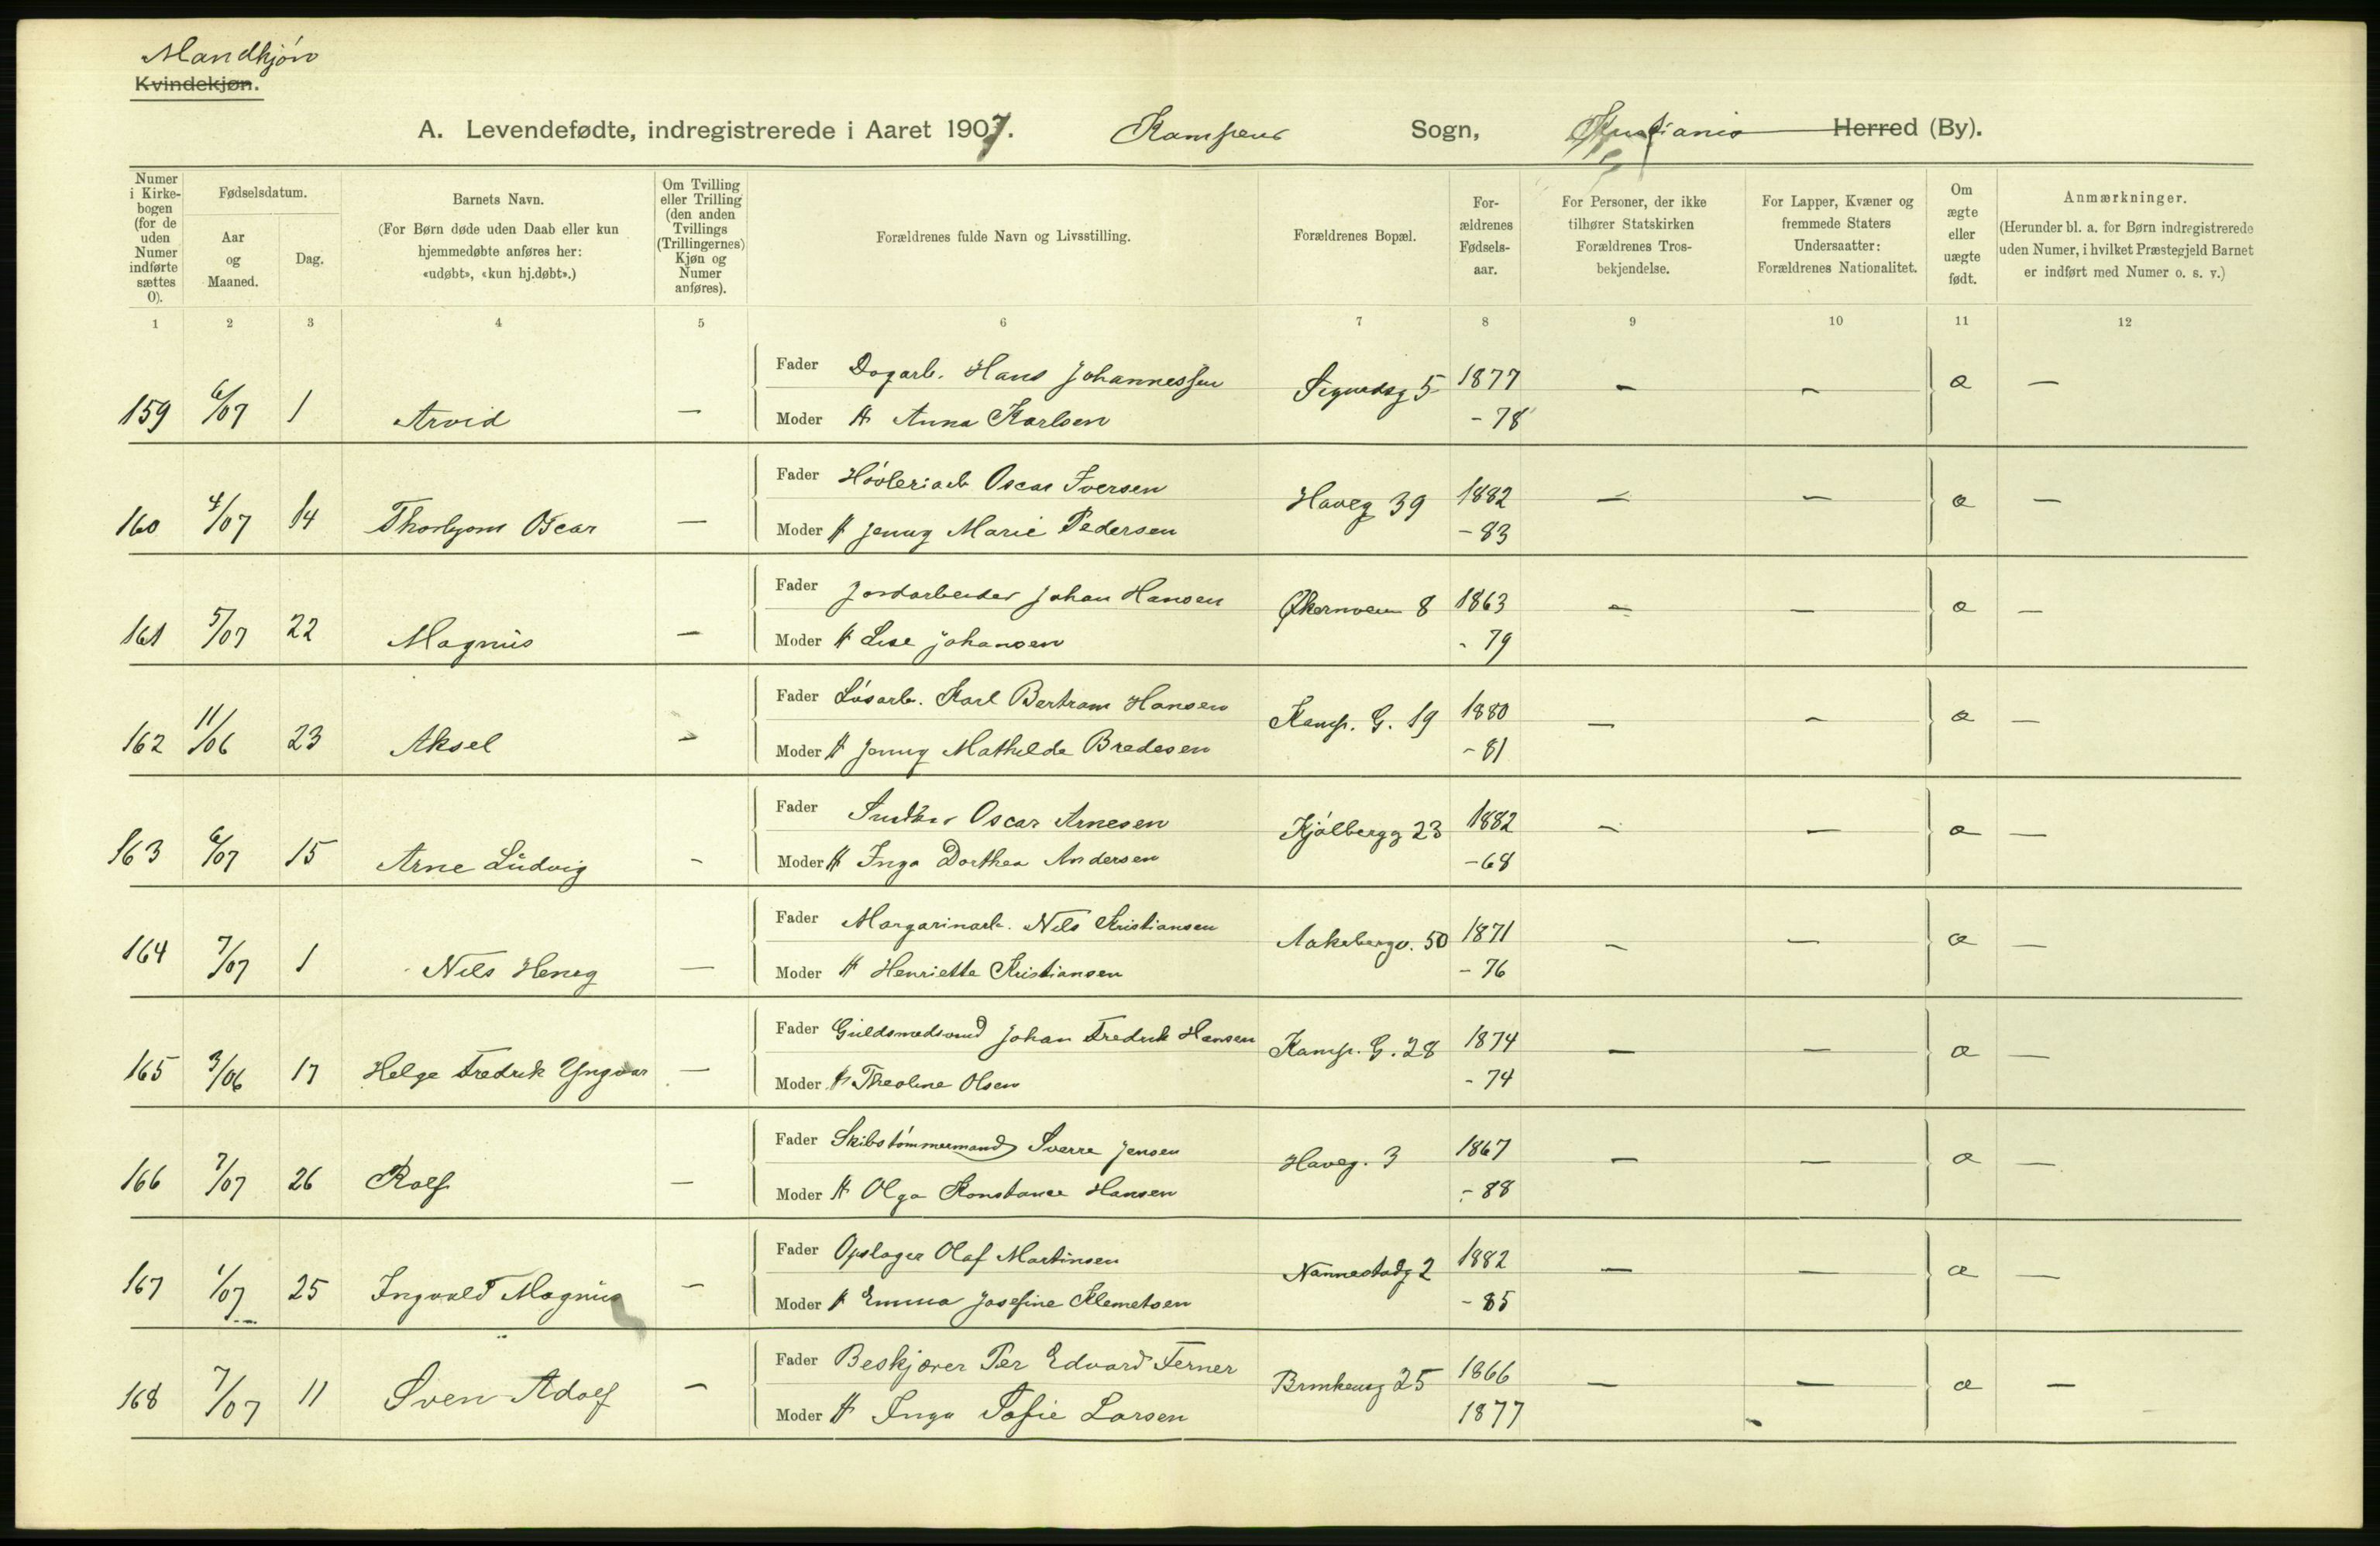 Mandkjøn
Kvindekjøn.
A. Levendefødte, indregistrerede i Aaret 1907. Kampens Sogn, Kristiania Herred (By).
Numer i Kirkebogen (for de uden Numer indførte sættes 0).
Fødselsdatum.
Aar og Maaned.
Dag.
Barnets Navn.
(For Børn døde uden Daab eller kun hjemmedøbte anføres her: «udøbt», «kun hj.døbt».)
Om Tvilling eller Trilling (den anden Tvillings (Trillingernes) Kjøn og Numer anføres).
Forældrenes fulde Navn og Livsstilling.
Forældrenes Bopæl.
Forældrenes Fødselsaar.
For Personer, der ikke tilhører Statskirken Forældrenes Trosbekjendelse.
For Lapper, Kvæner og fremmede Staters Undersaatter: Forældrenes Nationalitet.
Om ægte eller uægte født.
Anmærkninger.
(Herunder bl. a. for Børn indregistrerede uden Numer, i hvilket Præstegjeld Barnet er indført med Numer o. s. v.)
1 2 3 4 5 6 7 8 9 10 11 12
Fader Dagarb. Hans Johannessen Sigurdsg 5 1877 – – æ –
159 6/07 1 Arvid – Moder H Anna Karlsen - 78
Fader Høvleriarb Oscar Iversen Haveg 39 1882 – – æ –
160 4/07 14 Oscar – Moder H Jenny Marie Pedersen - 83
Fader Jordarbeider Johan Hansen Økernveien 8 1863 – – æ –
161 5/07 22 Magnus – Moder H Lise Johansen - 79
Fader Løsarb. Karl Bertram Hansen Kamp. G. 19 1880 – – æ –
162 11/06 23 Aksel – Moder H Jenny Mathilde Bredesen - 81
Fader Snedker Oscar Arnesen Kjølbergg 23 1882 – – æ –
163 6/07 15 Arne Ludvig – Moder H Inga Dorthea Andersen - 68
Fader Margarinarb. Nils Kristiansen Aakebergv. 50 1871 – – æ –
164 7/07 1 Nils Henry – Moder H Henriette Kristiansen - 76
Fader Guldsmedsvend Johan Fredrik Hansen Kamp. G. 28 1874 – – æ –
165 3/06 17 Helge Fredrik Yngvar – Moder H Theoline Olsen - 74
Fader Skibstømmermand Sverre Jensen Haveg. 3 1867 – – æ –
166 7/07 26 Rolf – Moder H Olga Konstance Hansen - 88
Fader Opslager Olaf Martinsen Nannestadg 2 1882 – – æ –
167 1/07 25 Ingvald Magnus – Moder H Emma Josefine Klemetsen - 85
Fader Beskjærer Per Edvard Ferner 25 1866 – – æ –
168 7/07 11 Sven Adolf – Moder H Inga Sofie Larsen 1877